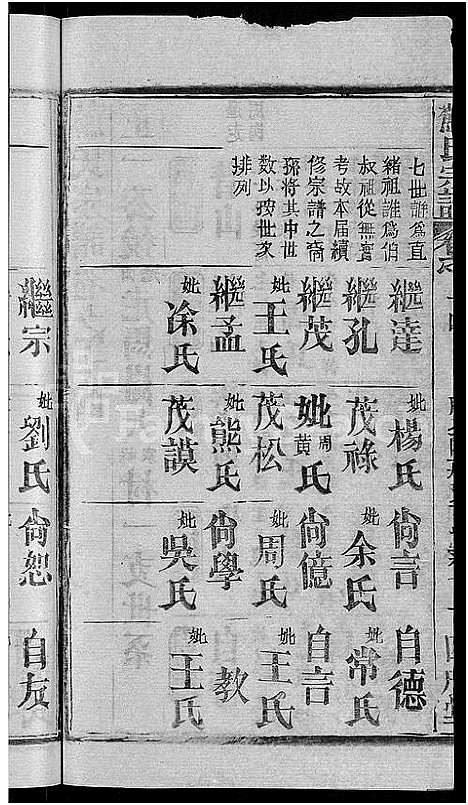 七世誰為直
緒祖誰爲俏
叔祖從無實
考故本届續
修宗譜之裔
孫將其中世
數以按世家
排列
繼達
繼孔
繼茂
妣王氏
繼孟
妣涂氏
繼宗
妣楊氏
茂祿
妣周黃氏
茂松
妣熊氏
茂謨
妣劉氏
尙言
妣余氏
尙億
妣周氏
尙學
妣吳氏
尙恕
自德
妣常氏
自言
妣王氏
自教
妣王氏
自友